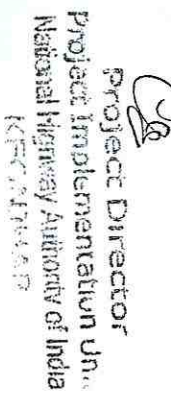 Project Director
Project Implementation Un..
National Highway Authority of India